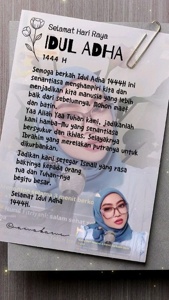 Selamat Hari Raya
IDUL ADHA
1444 H
Semoga berkah Idul Adha 1444H ini
senantiasa menghampiri kita dan
menjadikan kita manusia yang lebih
baik dari sebelumnya. Mohon maaf
lahir dan batin.
Yaa Allah Yaa Tuhan kami, jadikanlah
kami hamba-Mu yang senantiasa
bersyukur dan ikhlas. Selayaknya
Ibrahim yang merelakan Putranya untuk
dikurbankan.
Jadikan kami setegar Ismail yang rasa
baktinya kepada orang
tua dan Tuhan-nya
begitu besar.
Selamat Idul Adha
1444H.